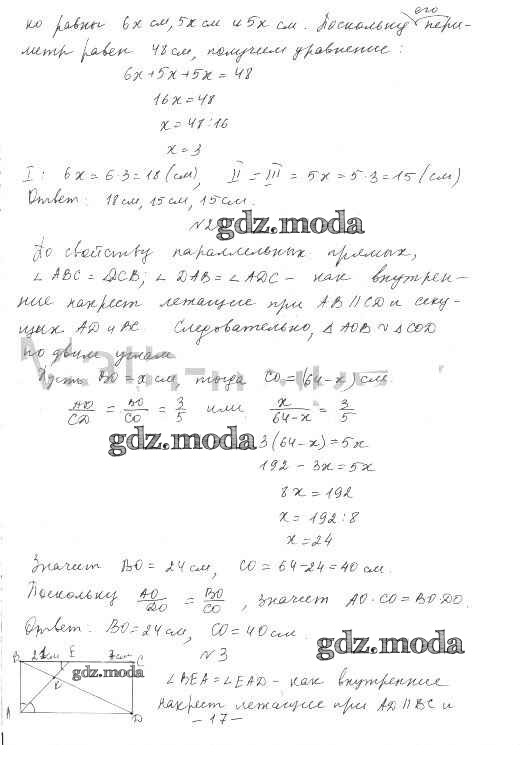 его
ко равны 6х см, 5х см и 5х см. Поскольку пери-
метр равен 48 см, получим уравнение:
6х+5х+5х=48
16х=48
х=48:16
х=3
I: 6х=6·3=18 (см), II=III=5х=5·3=15 (см)
Ответ: 18 см, 15 см, 15 см.
№2
gdz.moda
По свойству параллельных прямых,
∠ABC=∠DCB; ∠DAB=∠ADC - как внутрен-
ние накрест лежащие при AB∥CD и секу-
щих AD и BC. Следовательно, △AOB∾△COD
по двум углам
Пусть BO=х см, тогда CO=(64-х) см.
AO/CD = BO/CO = 3/5 или х/64-х = 3/5
gdz.moda
3(64-х)=5х
192-3х=5х
8х=192
х=192:8
х=24
Значит BO=24 см, CO=64-24=40 см.
Поскольку AO/DO = BO/CO, значит AO·CO=BO·DO.
Ответ: BO=24 см, CO=40 см.
gdz.moda
№3
B 21см E 7см C
gdz.moda
K
A D
∠BEA=∠EAD - как внутренние
накрест лежащие при AD∥BC и
-17-